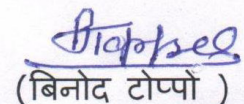 (बिनोद टोप्पो )